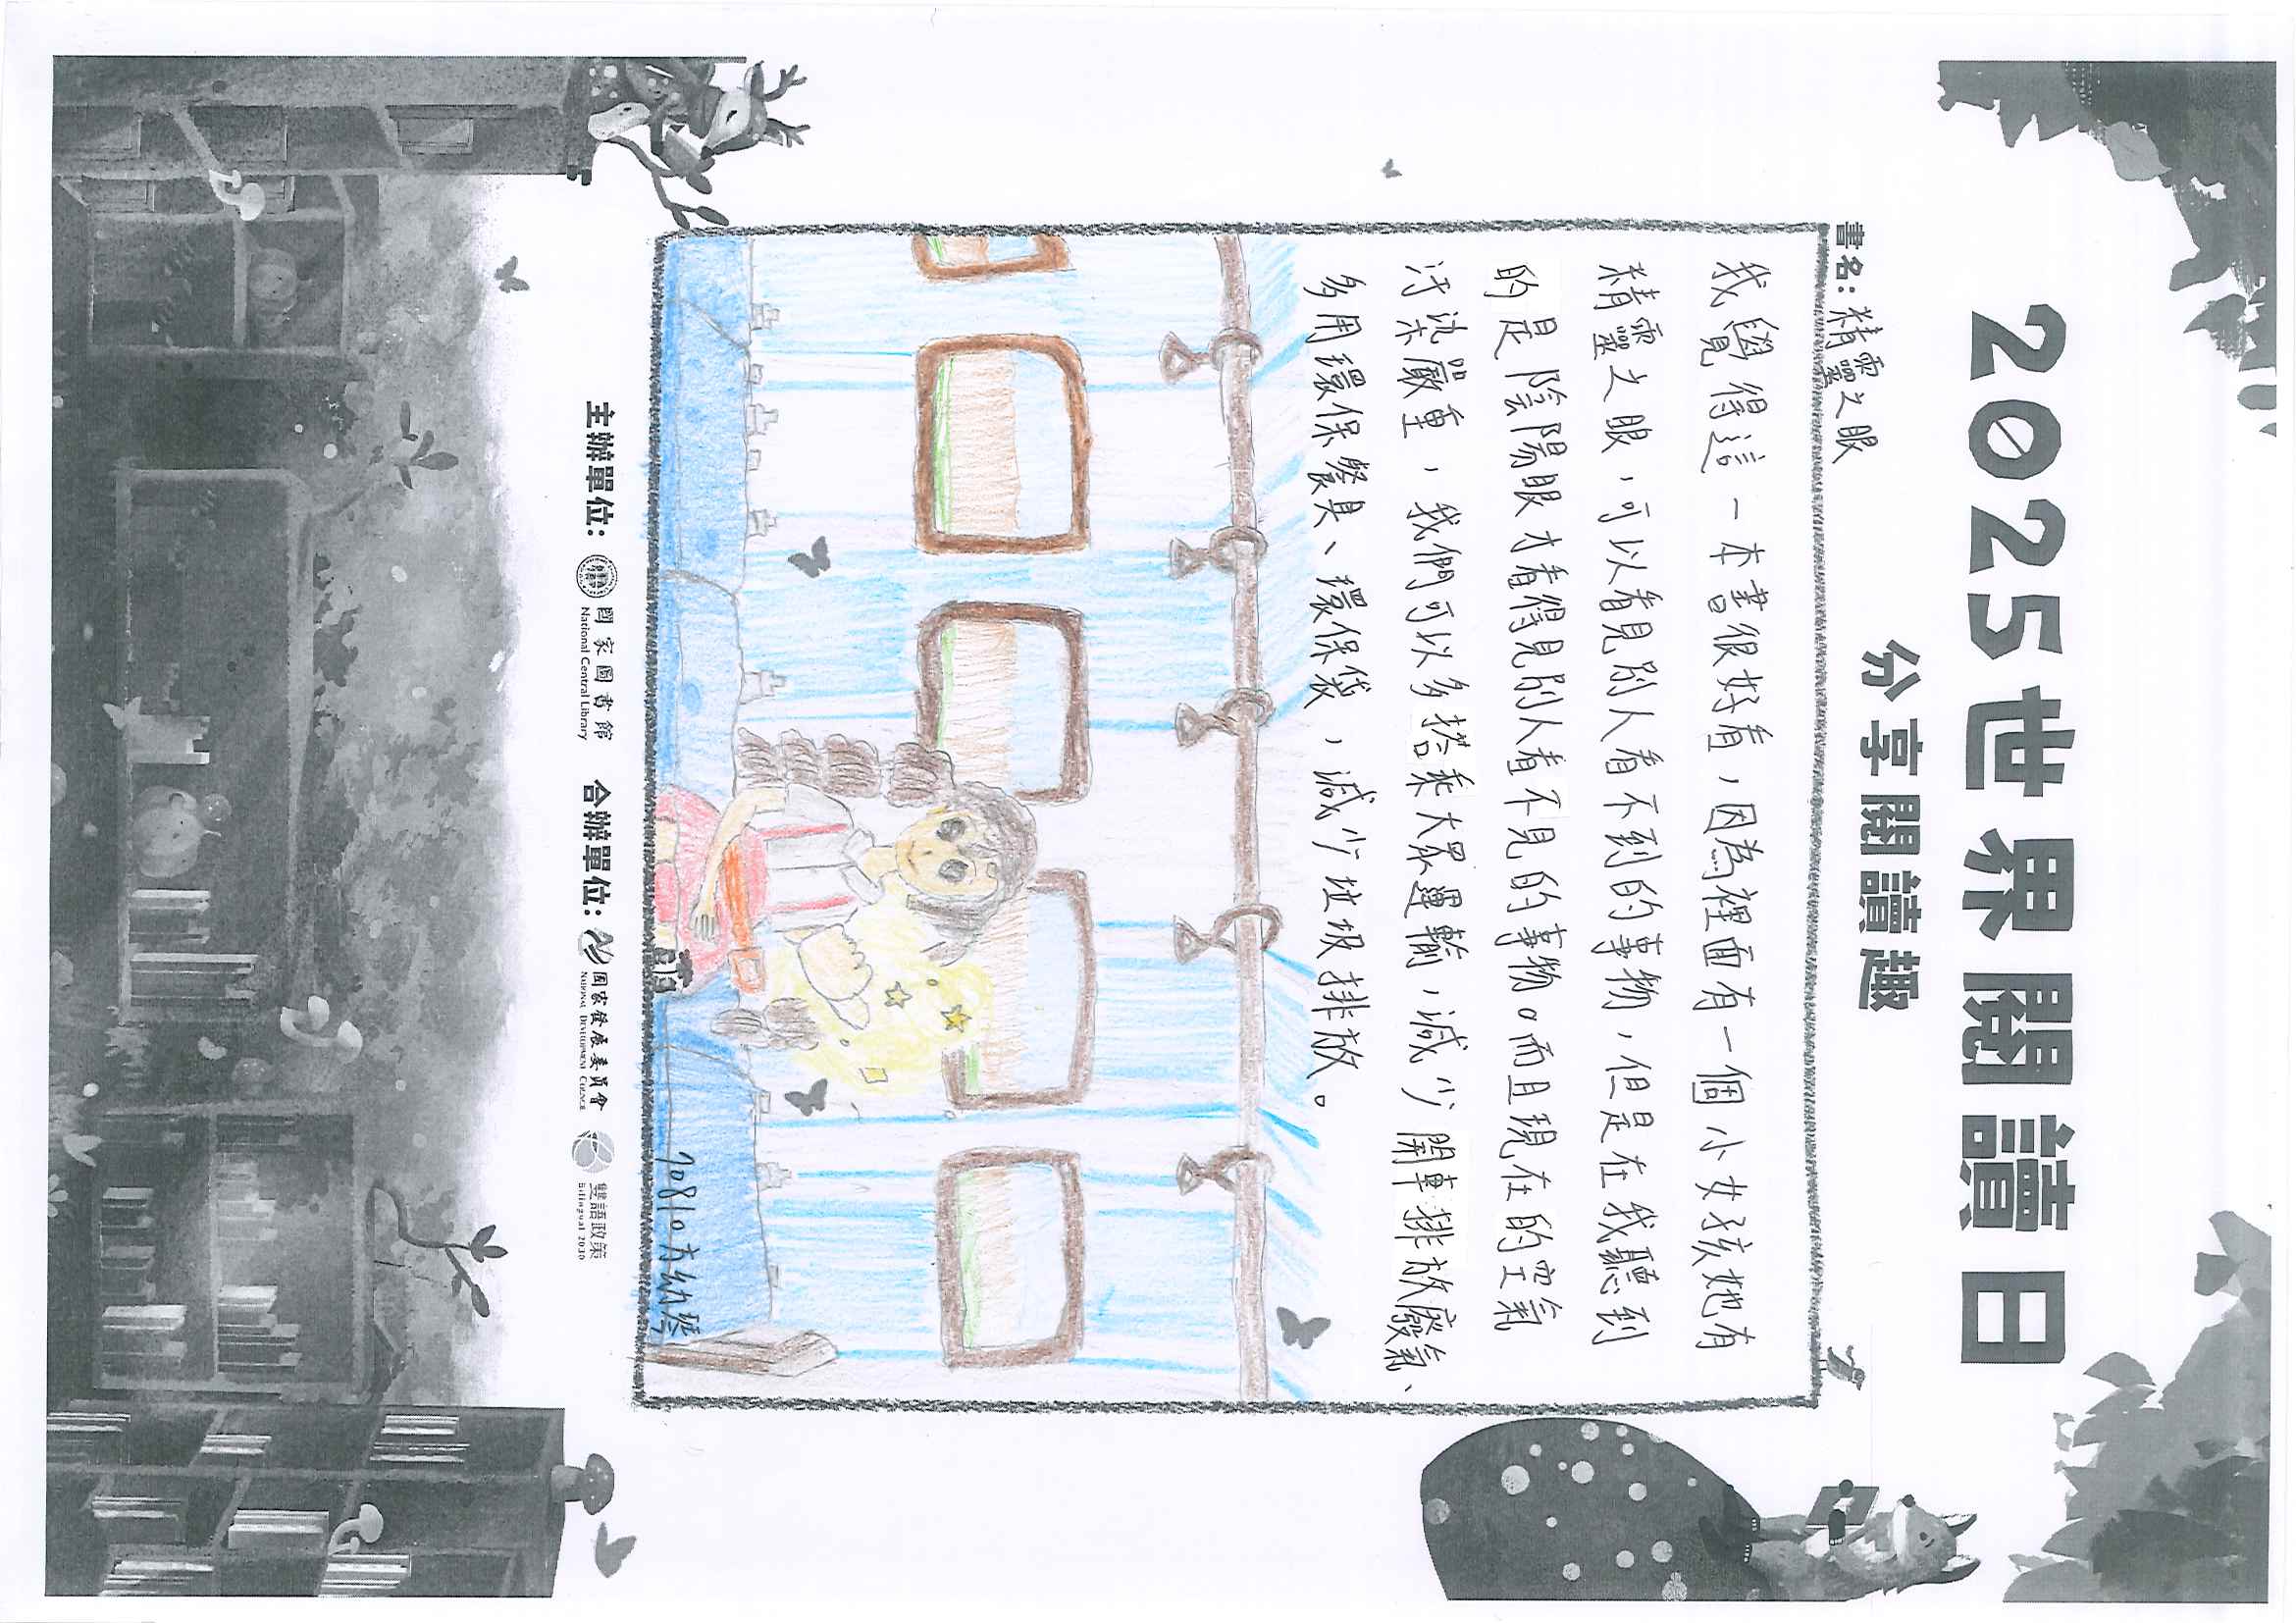 2025世界閱讀日
分享閱讀趣
書名:精靈之眼
我覺得這一本書很好看,因為裡面有一個小女孩她有
精靈之眼,可以看見別人看不到的事物,但是在我聽到
的是陰陽眼才看得見別人看不見的事物。而且現在的空氣
汙染嚴重,我們可以多搭乘大眾運輸,減少開車排放廢氣、
多用環保餐具、環保袋,減少垃圾排放。
70810
主辦單位: 國家圖書館 National Central Library 合辦單位: 國家發展委員會 NATIONAL DEVELOPMENT COUNCIL 雙語政策 Bilingual 2030